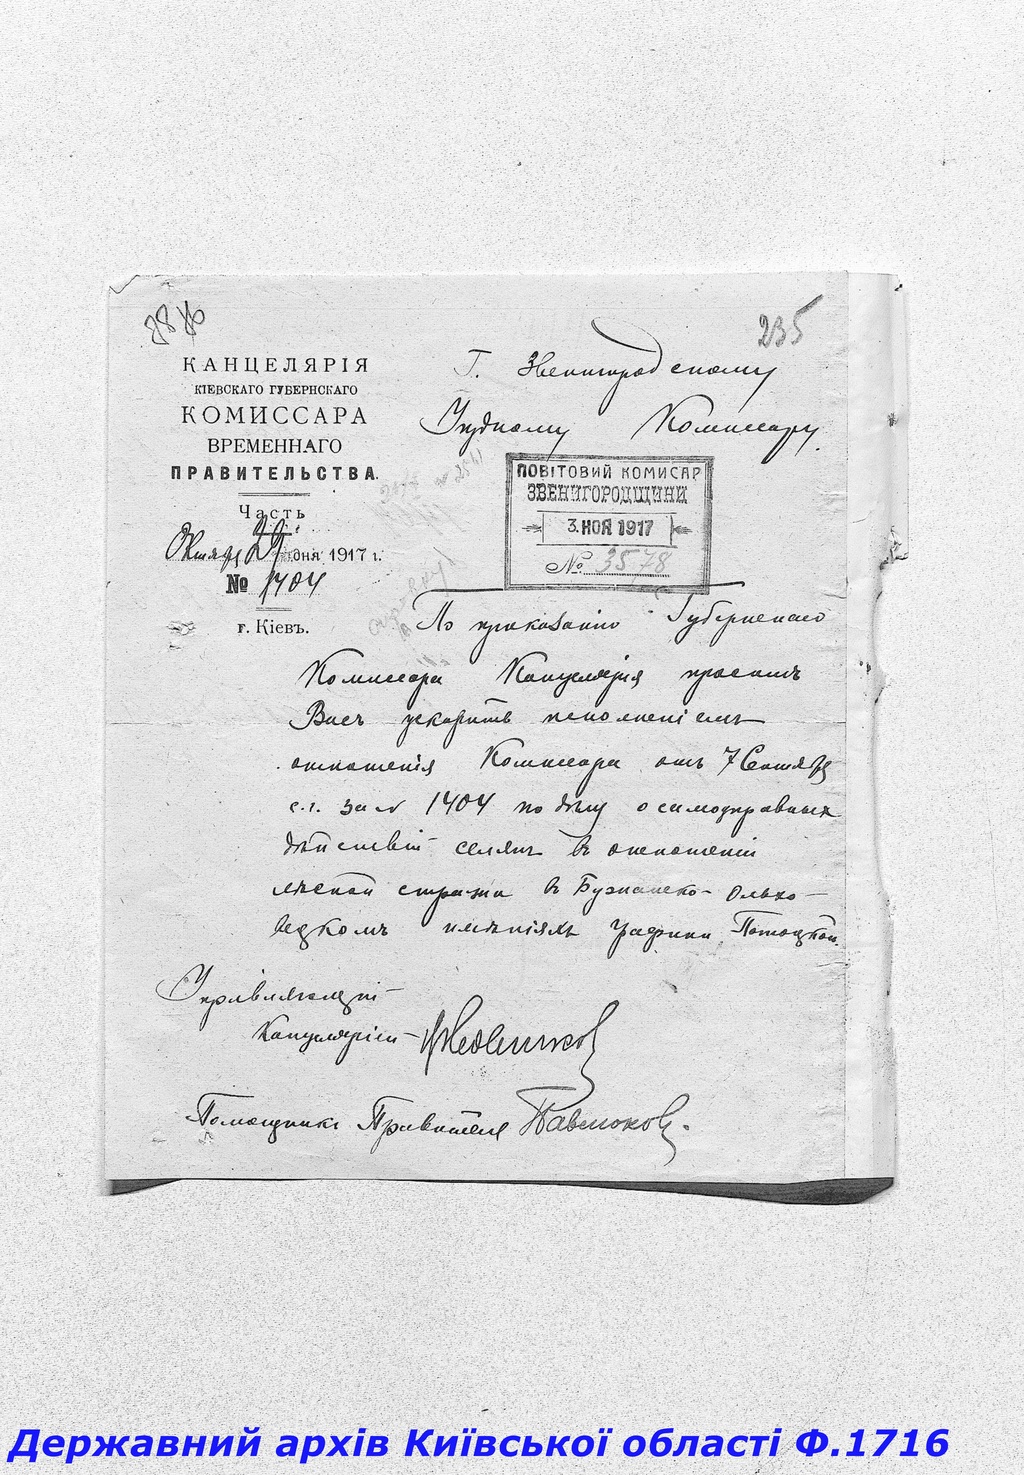 235
КАНЦЕЛЯРІЯ
КІЕВСКАГО ГУБЕРНСКАГО
КОМИССАРА
ВРЕМЕННАГО
ПРАВИТЕЛЬСТВА.
Часть
Октября 29 дня 1917 г.
№ 1404
г. Кіевъ.
Г. Звенигородскому
Уѣздному Комиссару.
ПОВІТОВИЙ КОМИСАР
ЗВЕНИГОРОДЩИНИ
3. НОЯ 1917
№ 3578
По приказанію Губернскаго
Комиссара Канцелярія проситъ
Васъ ускорить исполненіемъ
отношенія Комиссара отъ 7 Сентября
с.г. за № 1404 по дѣлу о самоуправныхъ
дѣйствій селянъ въ отношеніи
лѣсной стражи въ Бужанско-Ольхо-
вецкомъ имѣніяхъ графини Потоцкой.
Управляющій
Канцеляріей
Помощникъ Правителя Павлюковъ.
Державний архів Київської області Ф.1716